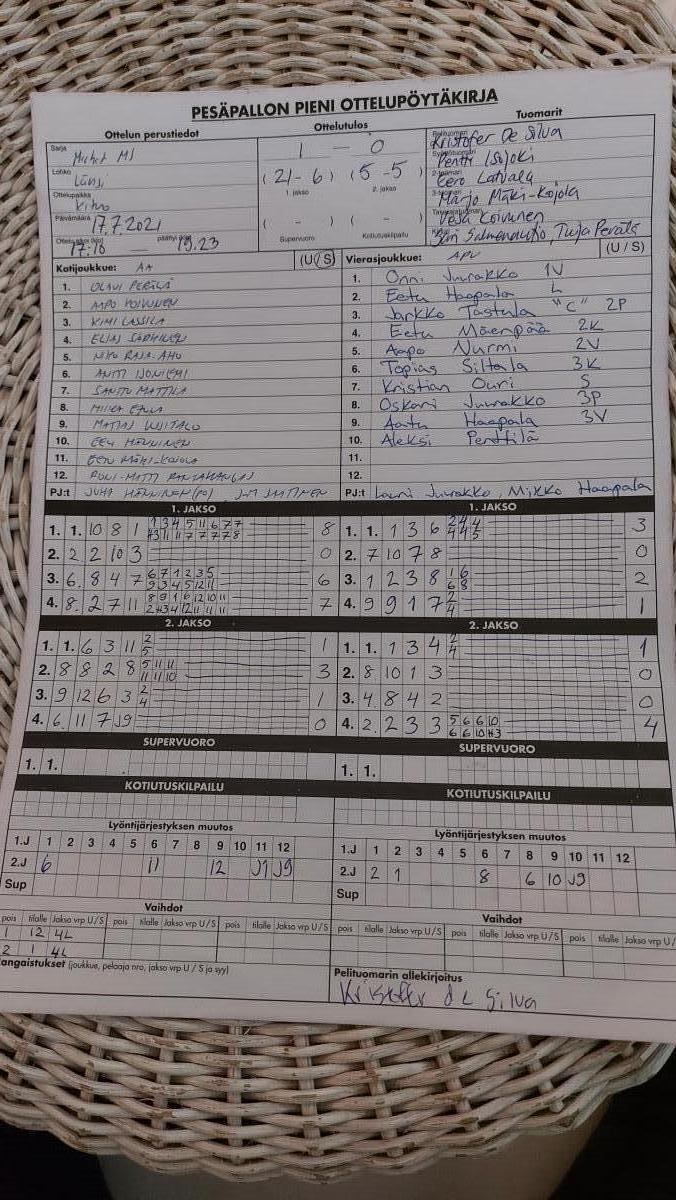 PESÄPALLON PIENI OTTELUPÖYTÄKIRJA
Ottelun perustiedot
Ottelutulos
Tuomarit
Sarja Miehet MS
Lohko Länsi
Ottelupaikka
Päivämäärä 17.7.2021
17:18 päättyi 19.23
1 - 0
(21 - 6) (5 - 5)
1. jakso 2. jakso
( - ) ( - )
Supervuoro Kotiutuskilpailu
Kristofer De Silva
Pentti Isojoki
Eero Latvala
Marjo Mäki-Kojola
Vesa Koivunen
Kotijoukkue: AA (U/S)
1. OLAVI PERÄLÄ
2. AAPO KOIVUNEN
3. KIMI LASSILA
4. ELIAS SÄRKINEN
5. NIKO RAJA-AHO
6. ANTTI IJONIEMI
7. SANTTU MATTILA
8. MIIKA
9. MATIAS LUJITALO
10. EELI HÄNNINEN
11. EETU MÄKI-KOJOLA
12. RONI-MATTI
PJ:t JUHA HÄNNINEN
Vierasjoukkue: APV (U/S)
1. Onni Juurakko 1V
2. Eetu Haapala L
3. Jarkko Tastula "C" 2P
4. Eetu Mäenpää 2K
5. Aapo Nurmi 2V
6. Topias Siltala 3K
7. Kristian Ouri S
8. Oskari Juurakko 3P
9. Aatu Haapala 3V
10. Aleksi Penttilä
11.
12.
PJ:t Lauri Juurakko, Mikko Haapala
1. JAKSO
1. 1. 10 8 1 8
2. 2 2 10 3 0
3. 6 8 4 7 6
4. 8 2 7 11 7
2. JAKSO
1. 1. 6 3 11 2 1
5
2. 8 8 2 8 5 11 11 3
11 11 10
3. 9 12 6 3 2 1
4
4. 6 11 7 J9 0
SUPERVUORO
1. 1.
KOTIUTUSKILPAILU
1. JAKSO
1. 1. 1 3 6 2 4 4 3
4 4 5
2. 7 10 7 8 0
3. 1 2 3 8 1 6 2
6 8
4. 9 9 1 7 2 1
4
2. JAKSO
1. 1. 1 3 4 2 1
4
2. 8 10 1 3 0
3. 4 8 4 2 0
4. 2 2 3 3 5 6 6 10 4
6 6 10 #3
SUPERVUORO
1. 1.
KOTIUTUSKILPAILU
Lyöntijärjestyksen muutos
1.J 1 2 3 4 5 6 7 8 9 10 11 12
2.J 6 11 12 J1 J9
Sup
Vaihdot
pois tilalle Jakso vrp U/S pois tilalle Jakso vrp U/S pois tilalle Jakso vrp U/S
1 12 4L
2 1 4L
angaistukset (joukkue, pelaaja nro, jakso vrp U / S ja syy)
Lyöntijärjestyksen muutos
1.J 1 2 3 4 5 6 7 8 9 10 11 12
2.J 2 1 8 6 10 J9
Sup
Vaihdot
pois tilalle Jakso vrp U/S pois tilalle Jakso vrp U/S pois tilalle Jakso vrp U/
Pelituomarin allekirjoitus
Kristofer de Silva